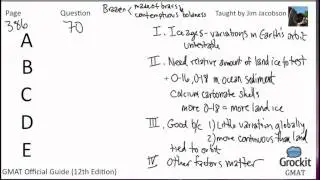 Page
Question
Taught by Jim Jacobson
386
70
Brazen < made of brass
contemptuous boldness
A
B
C
D
E
I. Ice ages - variations in Earth's orbit
untestable
II. Need relative amount of land ice to test
→ O-16, O18 in ocean sediment
Calcium carbonate shells
more O-18 = more land ice
III. Good b/c 1) Little variation globally
2) more continuous than land
tied to orbit
IV Other factors matter
GMAT Official Guide (12th Edition)
Grockit
GMAT